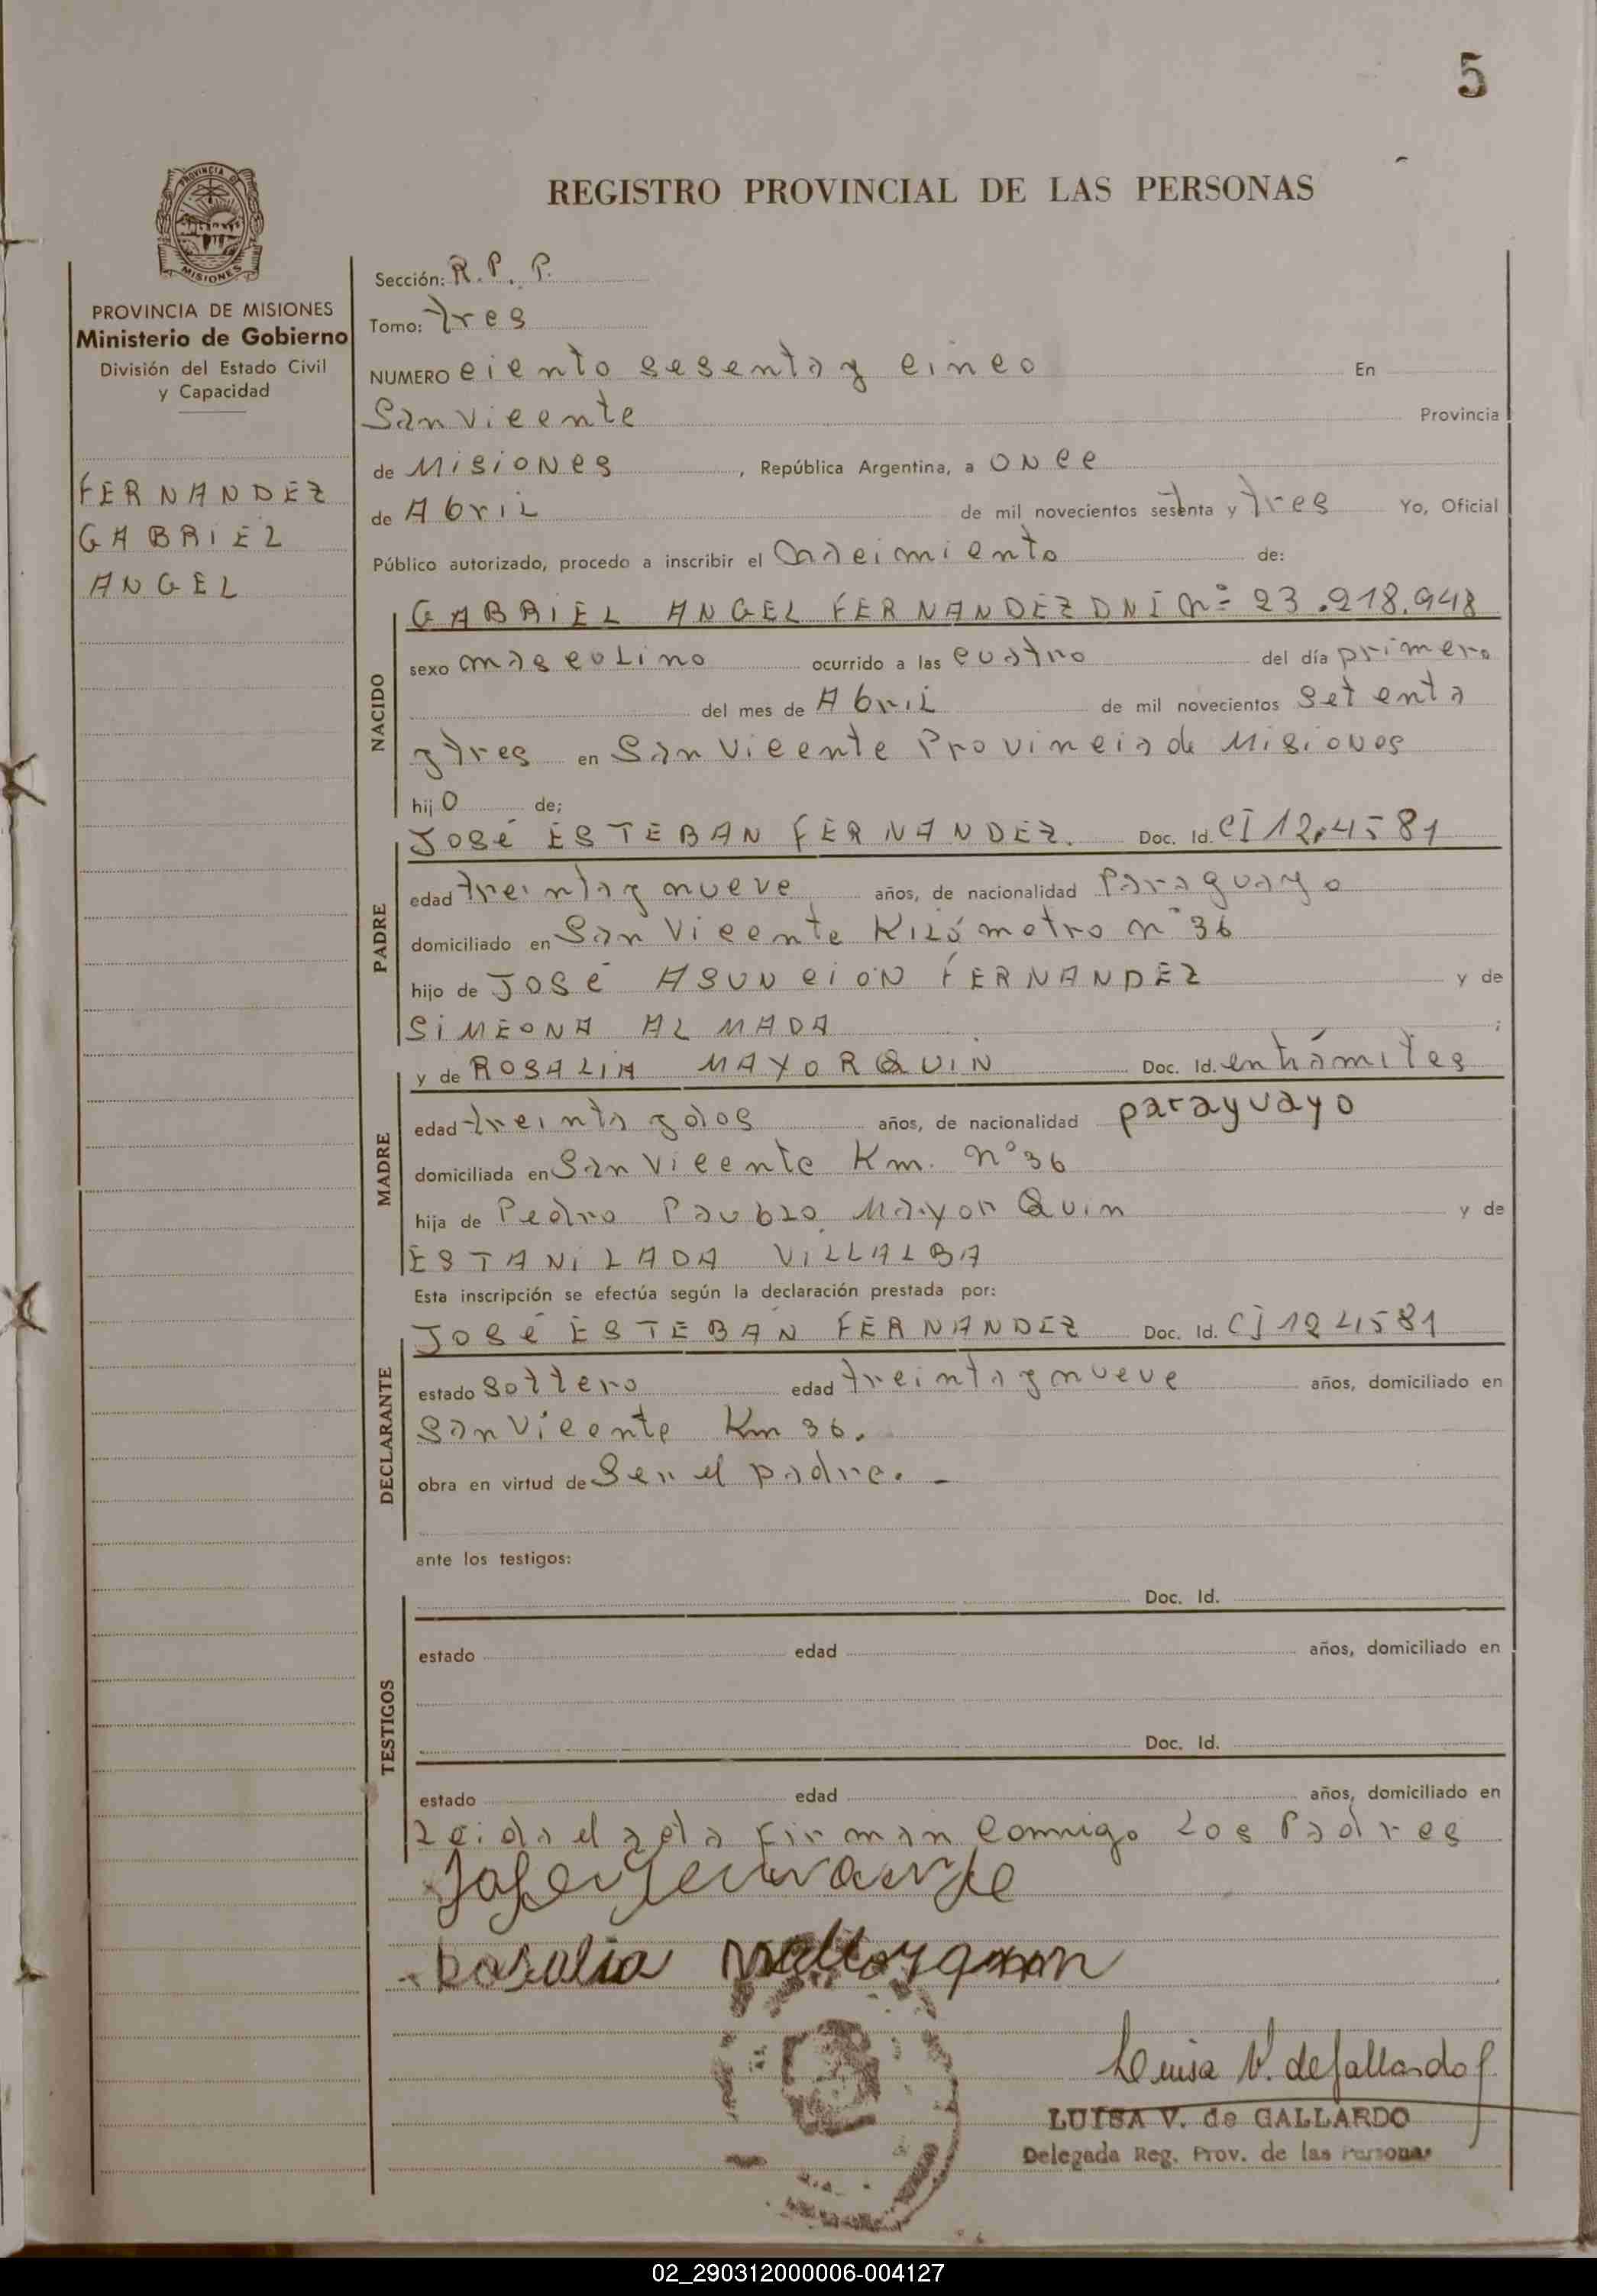 5
REGISTRO PROVINCIAL DE LAS PERSONAS
PROVINCIA DE MISIONES
Ministerio de Gobierno
División del Estado Civil
y Capacidad
FERNANDEZ
GABRIEL
ANGEL
Sección: R. P. P.
Tomo: tres
NUMERO ciento sesenta y cinco En
San Vicente Provincia
de Misiones, República Argentina, a once
de Abril de mil novecientos setenta y tres Yo, Oficial
Público autorizado, procedo a inscribir el nacimiento de:
NACIDO
GABRIEL ANGEL FERNANDEZ DNI Nº 23.218.948
sexo masculino ocurrido a las cuatro del día primero
del mes de Abril de mil novecientos setenta
y tres en San Vicente Provincia de Misiones
hijo de;
PADRE
JOSÉ ESTEBAN FERNANDEZ. Doc. Id. CI 124581
edad treinta y nueve años, de nacionalidad Paraguayo
domiciliado en San Vicente Kilómetro nº 36
hijo de JOSÉ ASUNCION FERNANDEZ y de
SIMEONA ALMADA ;
MADRE
y de ROSALIA MAYORQUIN Doc. Id. en trámites
edad treinta y dos años, de nacionalidad paraguayo
domiciliada en San Vicente Km. nº 36
hija de Pedro Paublo Mayor Quin y de
ESTANILADA VILLALBA
Esta inscripción se efectúa según la declaración prestada por:
DECLARANTE
JOSÉ ESTEBAN FERNANDEZ Doc. Id. CI 124581
estado soltero edad treinta y nueve años, domiciliado en
San Vicente Km 36.
obra en virtud de Ser el padre. -
ante los testigos:
TESTIGOS
Doc. Id.
estado edad años, domiciliado en
Doc. Id.
estado edad años, domiciliado en
Leida el acta firman conmigo los Padres
Rosalia mallorquin
Luisa V. de Gallardo
LUISA V. de GALLARDO
Delegada Reg. Prov. de las Personas
02_290312000006-004127